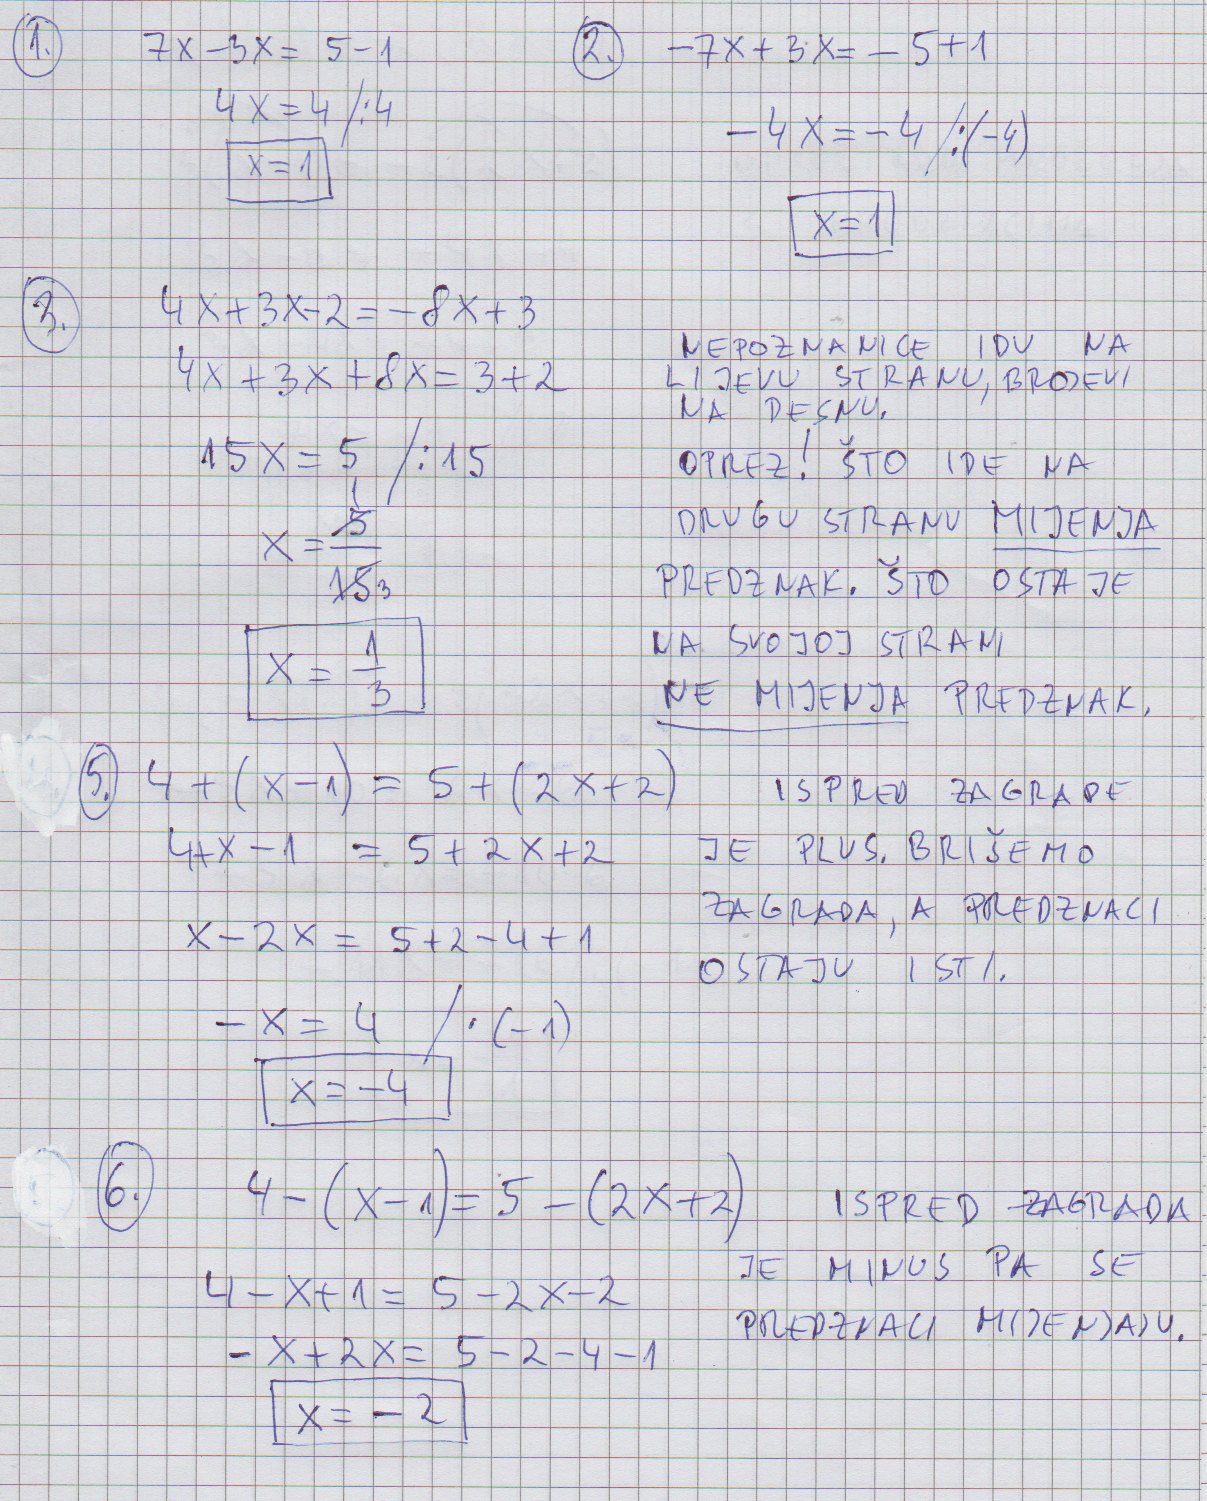 1.
7x - 3x = 5 - 1
4x = 4 /:4
x = 1
2.
-7x + 3x = -5 + 1
-4x = -4 /:(-4)
x = 1
3.
4x + 3x - 2 = -8x + 3
4x + 3x + 8x = 3 + 2
15x = 5 /:15
x = 5/15 1 3
x = 1/3
NEPOZNANICE IDU NA
LIJEVU STRANU, BROJEVI
NA DESNU.
OPREZ! ŠTO IDE NA
DRUGU STRANU MIJENJA
PREDZNAK. ŠTO OSTAJE
NA SVOJOJ STRANI
NE MIJENJA PREDZNAK.
5.
4 + (x - 1) = 5 + (2x + 2)
4 + x - 1 = 5 + 2x + 2
x - 2x = 5 + 2 - 4 + 1
-x = 4 /·(-1)
x = -4
ISPRED ZAGRADE
JE PLUS. BRIŠEMO
ZAGRADA, A PREDZNACI
OSTAJU ISTI.
6.
4 - (x - 1) = 5 - (2x + 2)
4 - x + 1 = 5 - 2x - 2
-x + 2x = 5 - 2 - 4 - 1
x = -2
ISPRED ZAGRADA
JE MINUS PA SE
PREDZNACI MIJENJAJU.